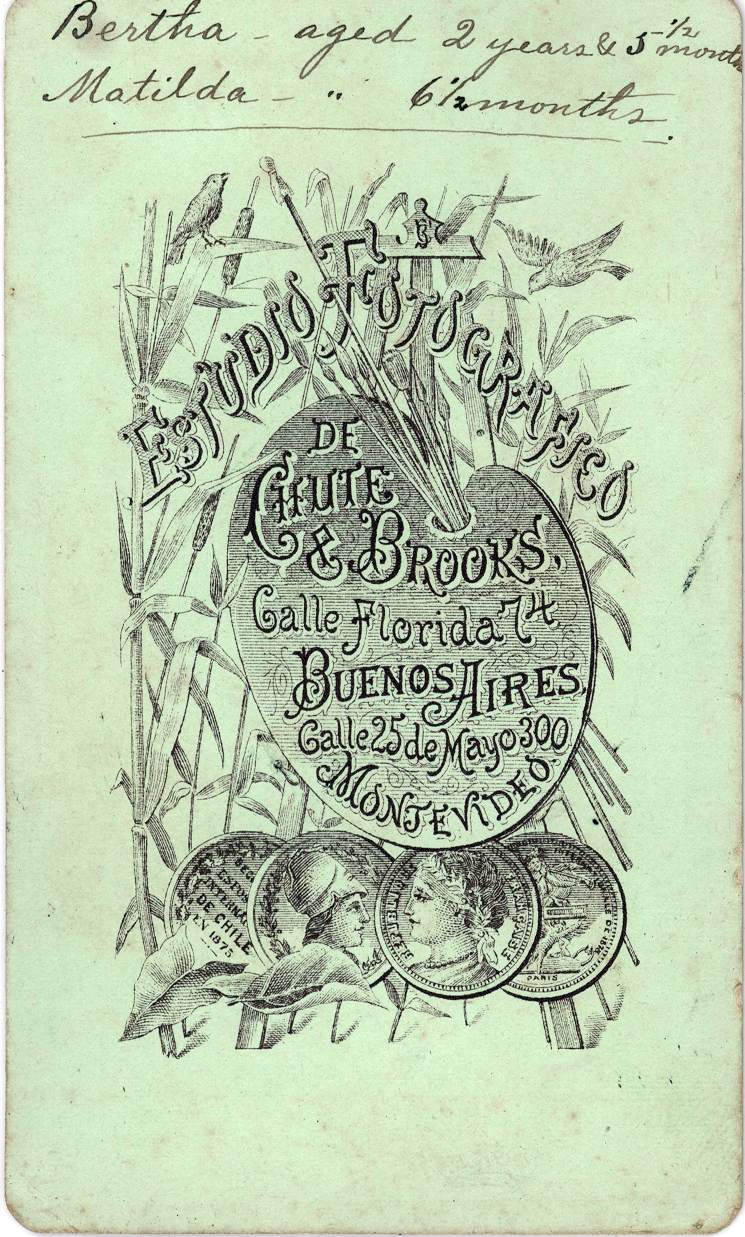 Bertha - aged 2 years & 5 1/2 months
Matilda - " 6 1/2 months
ESTUDIO FOTOGRAFICO
DE
CHUTE
& BROOKS.
Calle Florida 74
BUENOS AIRES.
Calle 25 de Mayo 300
MONTEVIDEO.
DE CHILE
EN 1875
REPUBLIQUE FRANÇAISE
PARIS